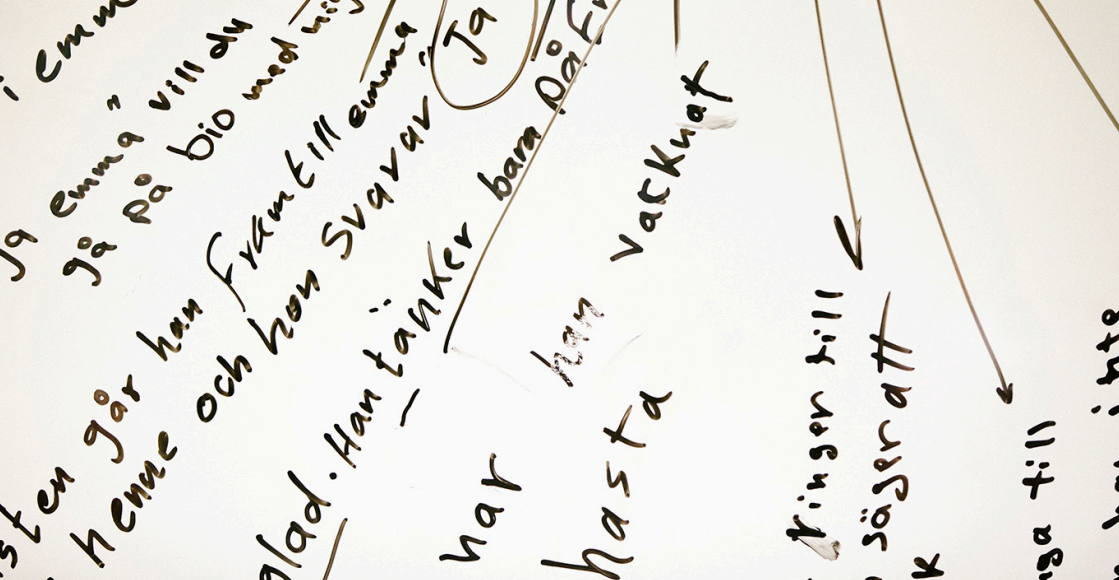 i emm
Ja emma" vill du
gå på bio med mig
sten går han fram till emma
henne och hon svarar"
Ja
glad. Han tänker bara på Fr
har han vacknat
hasta
ringer till
säger att
k
nga till
inte